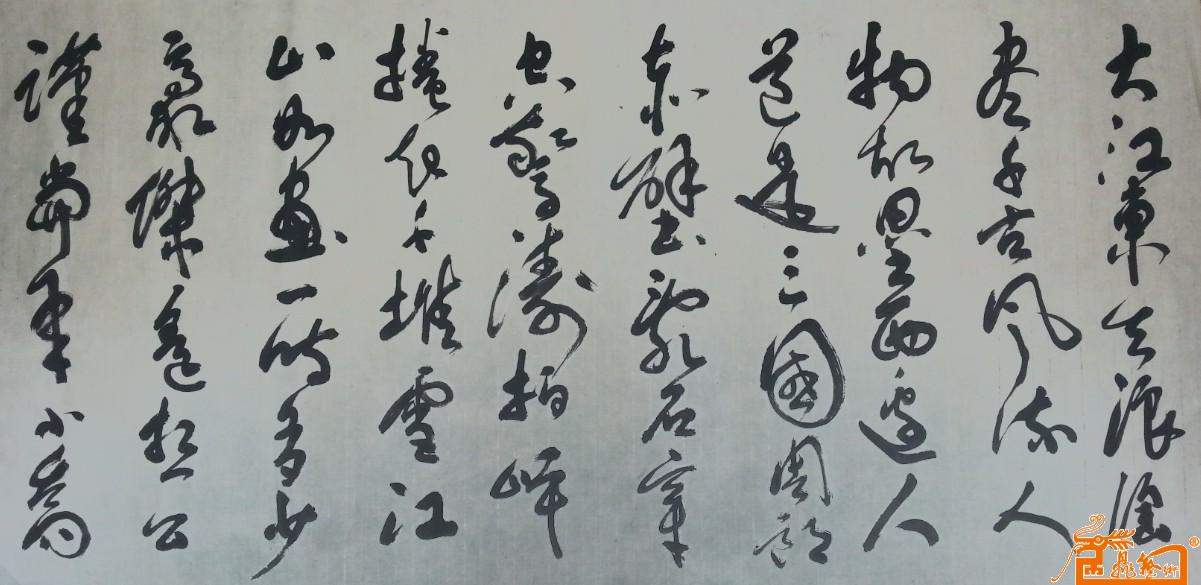 大江東去浪淘
尽千古風流人
物故壘西邊人
道是三國周郎
赤壁亂石穿
空驚濤拍岸
捲起千堆雪江
山如畫一時多少
豪傑遙想公
謹當年小喬